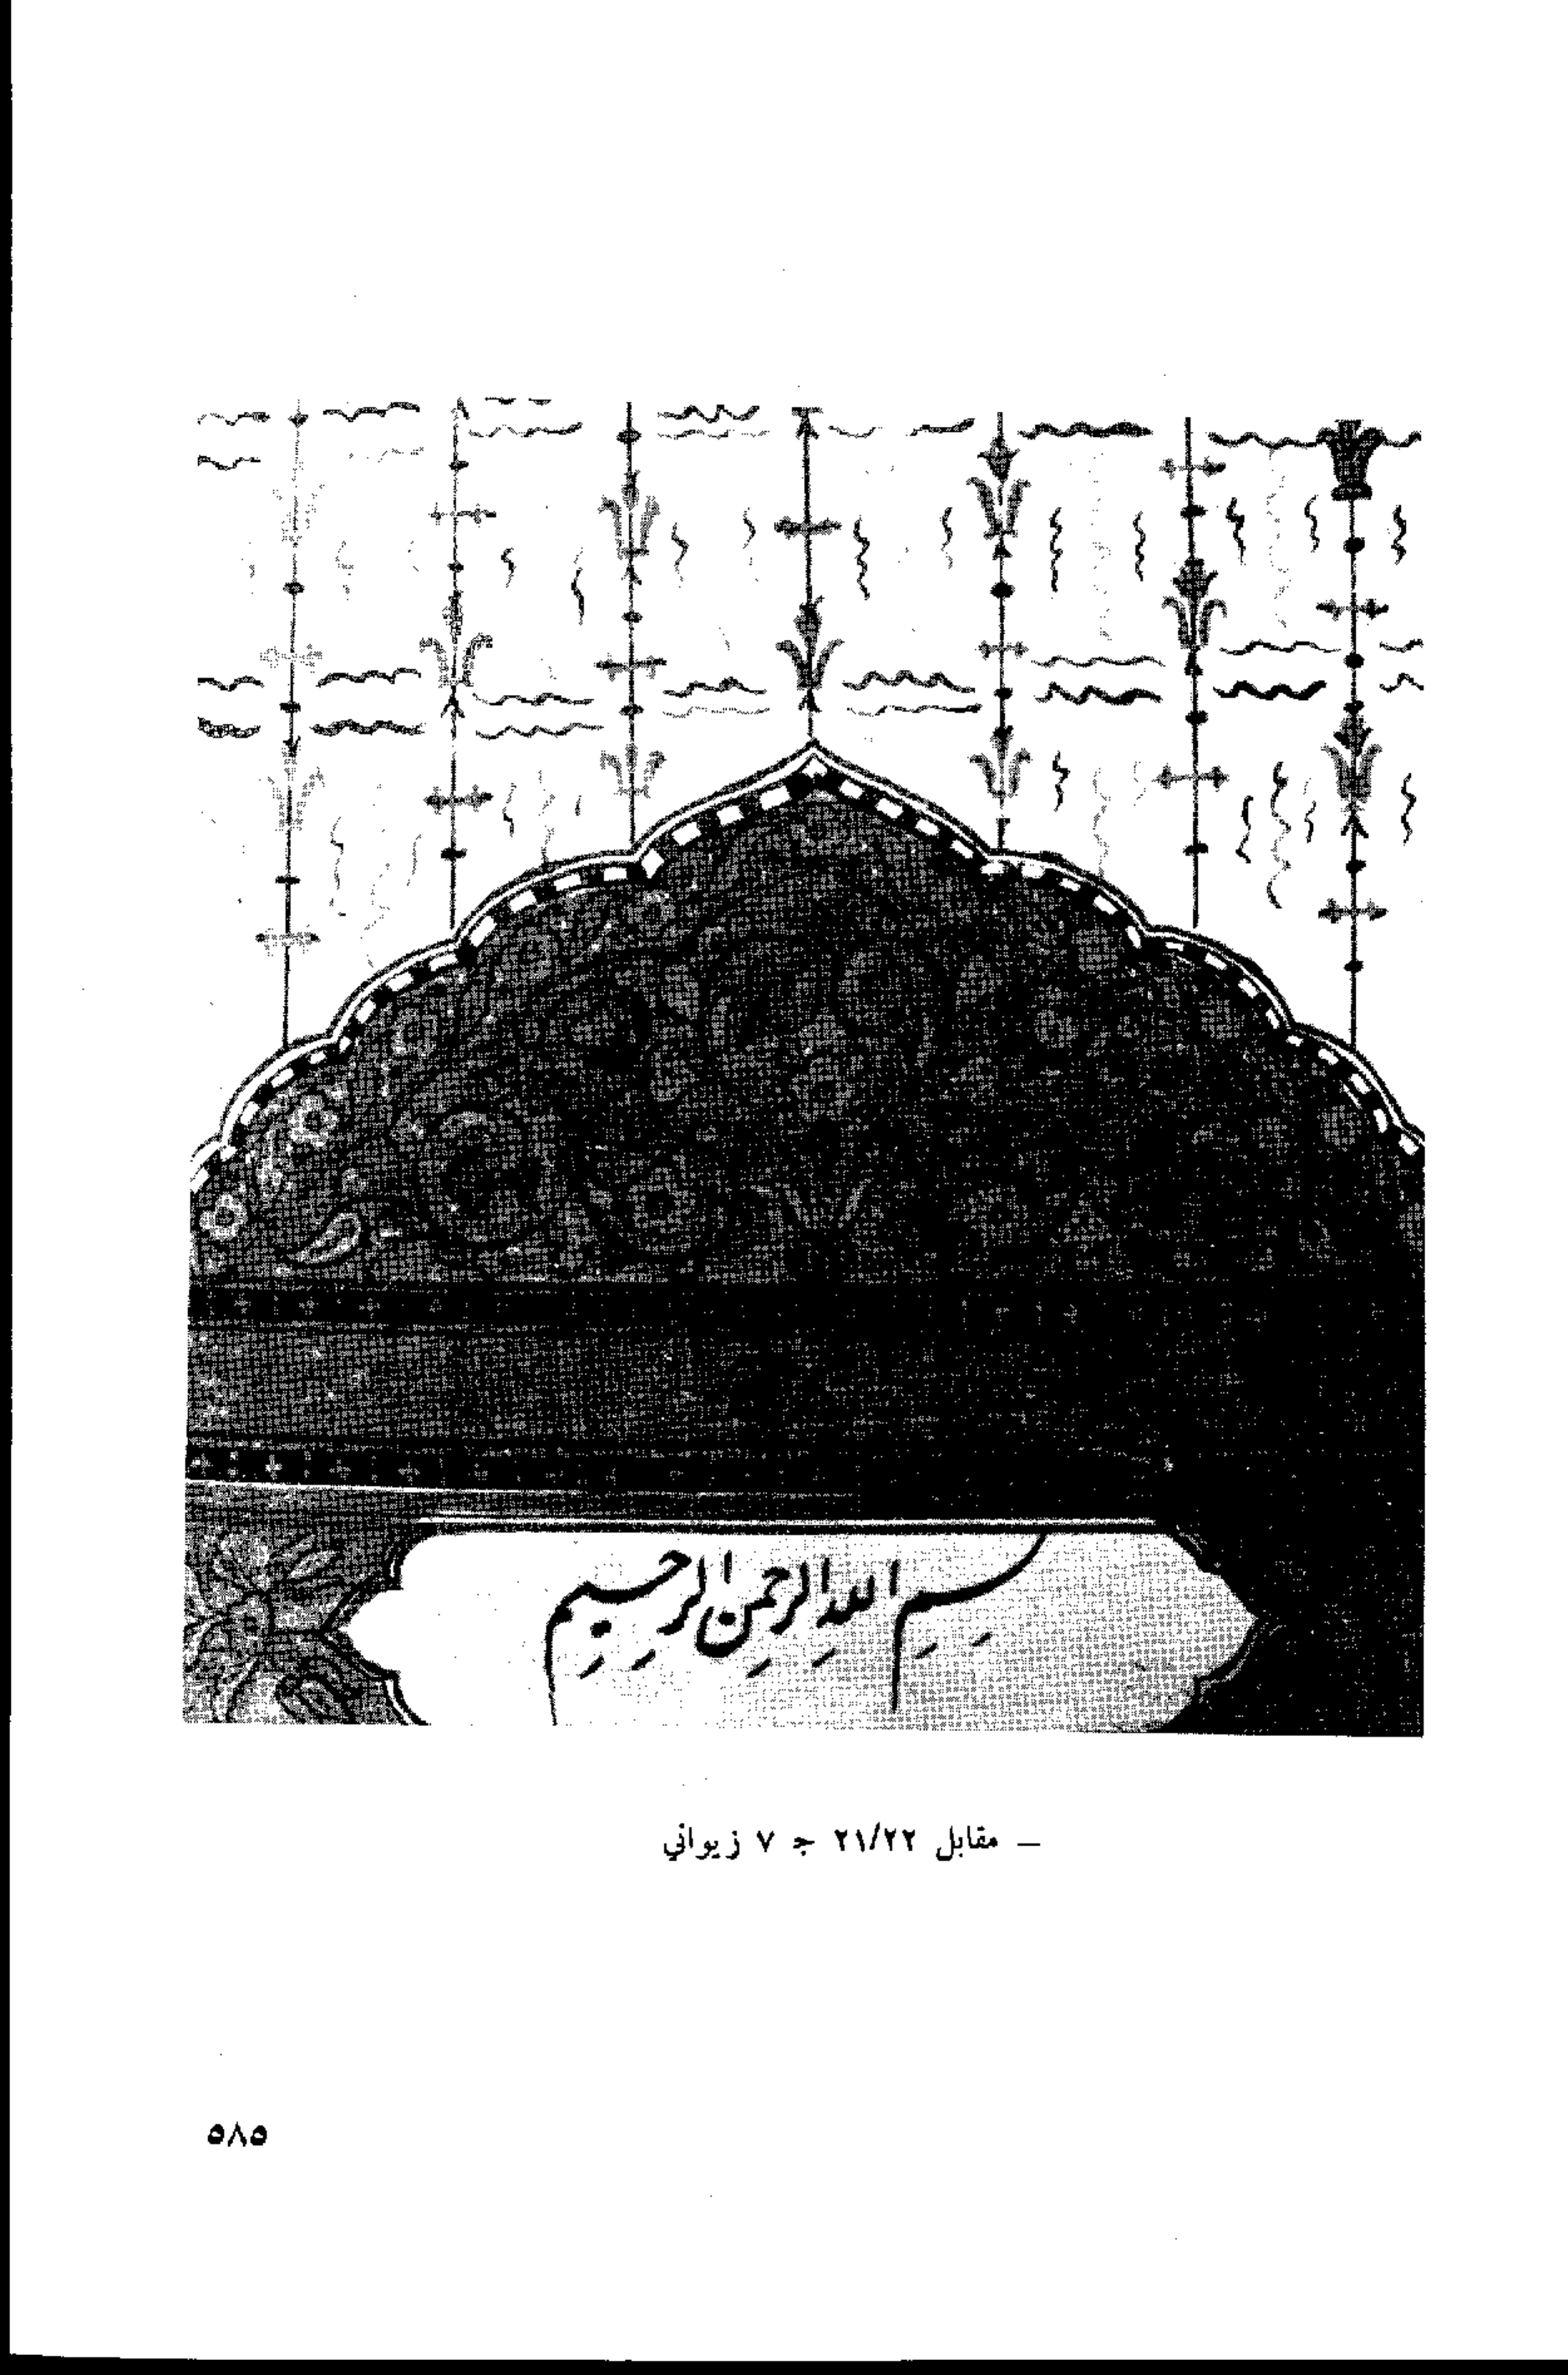 بِسمِ اللهِ الرحمنِ الرحِيمِ
– مقابل ٢١/٢٢ ج ٧ زيواني
٥٨٥